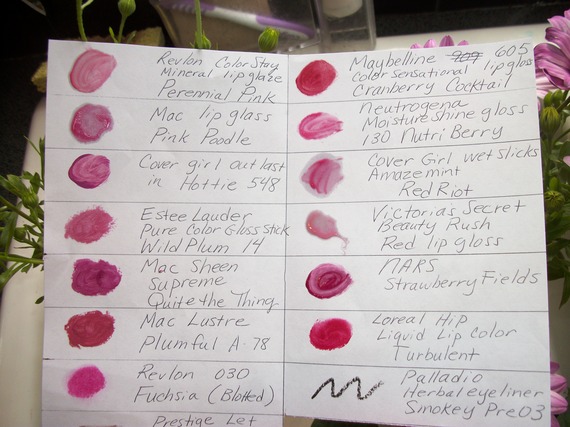 Revlon Color Stay
Mineral lipglaze
Perennial Pink
Mac lip glass
Pink Poodle
Cover girl outlast
in Hottie 548
Estee Lauder
Pure Color Gloss Stick
Wild Plum 14
Mac Sheen
Supreme
Quite the Thing
Mac Lustre
Plumful A-78
Revlon 030
Fuchsia (Blotted)
Prestige Let
Maybelline 605
Color Sensational lipgloss
Cranberry Cocktail
Neutrogena
Moistureshine gloss
130 NutriBerry
Cover Girl wetslicks
Amazemint
Red Riot
Victoria's Secret
Beauty Rush
Red lip gloss
NARS
Strawberry Fields
Loreal Hip
Liquid Lip Color
Turbulent
Palladio
Herbal eyeliner
Smokey Pre03